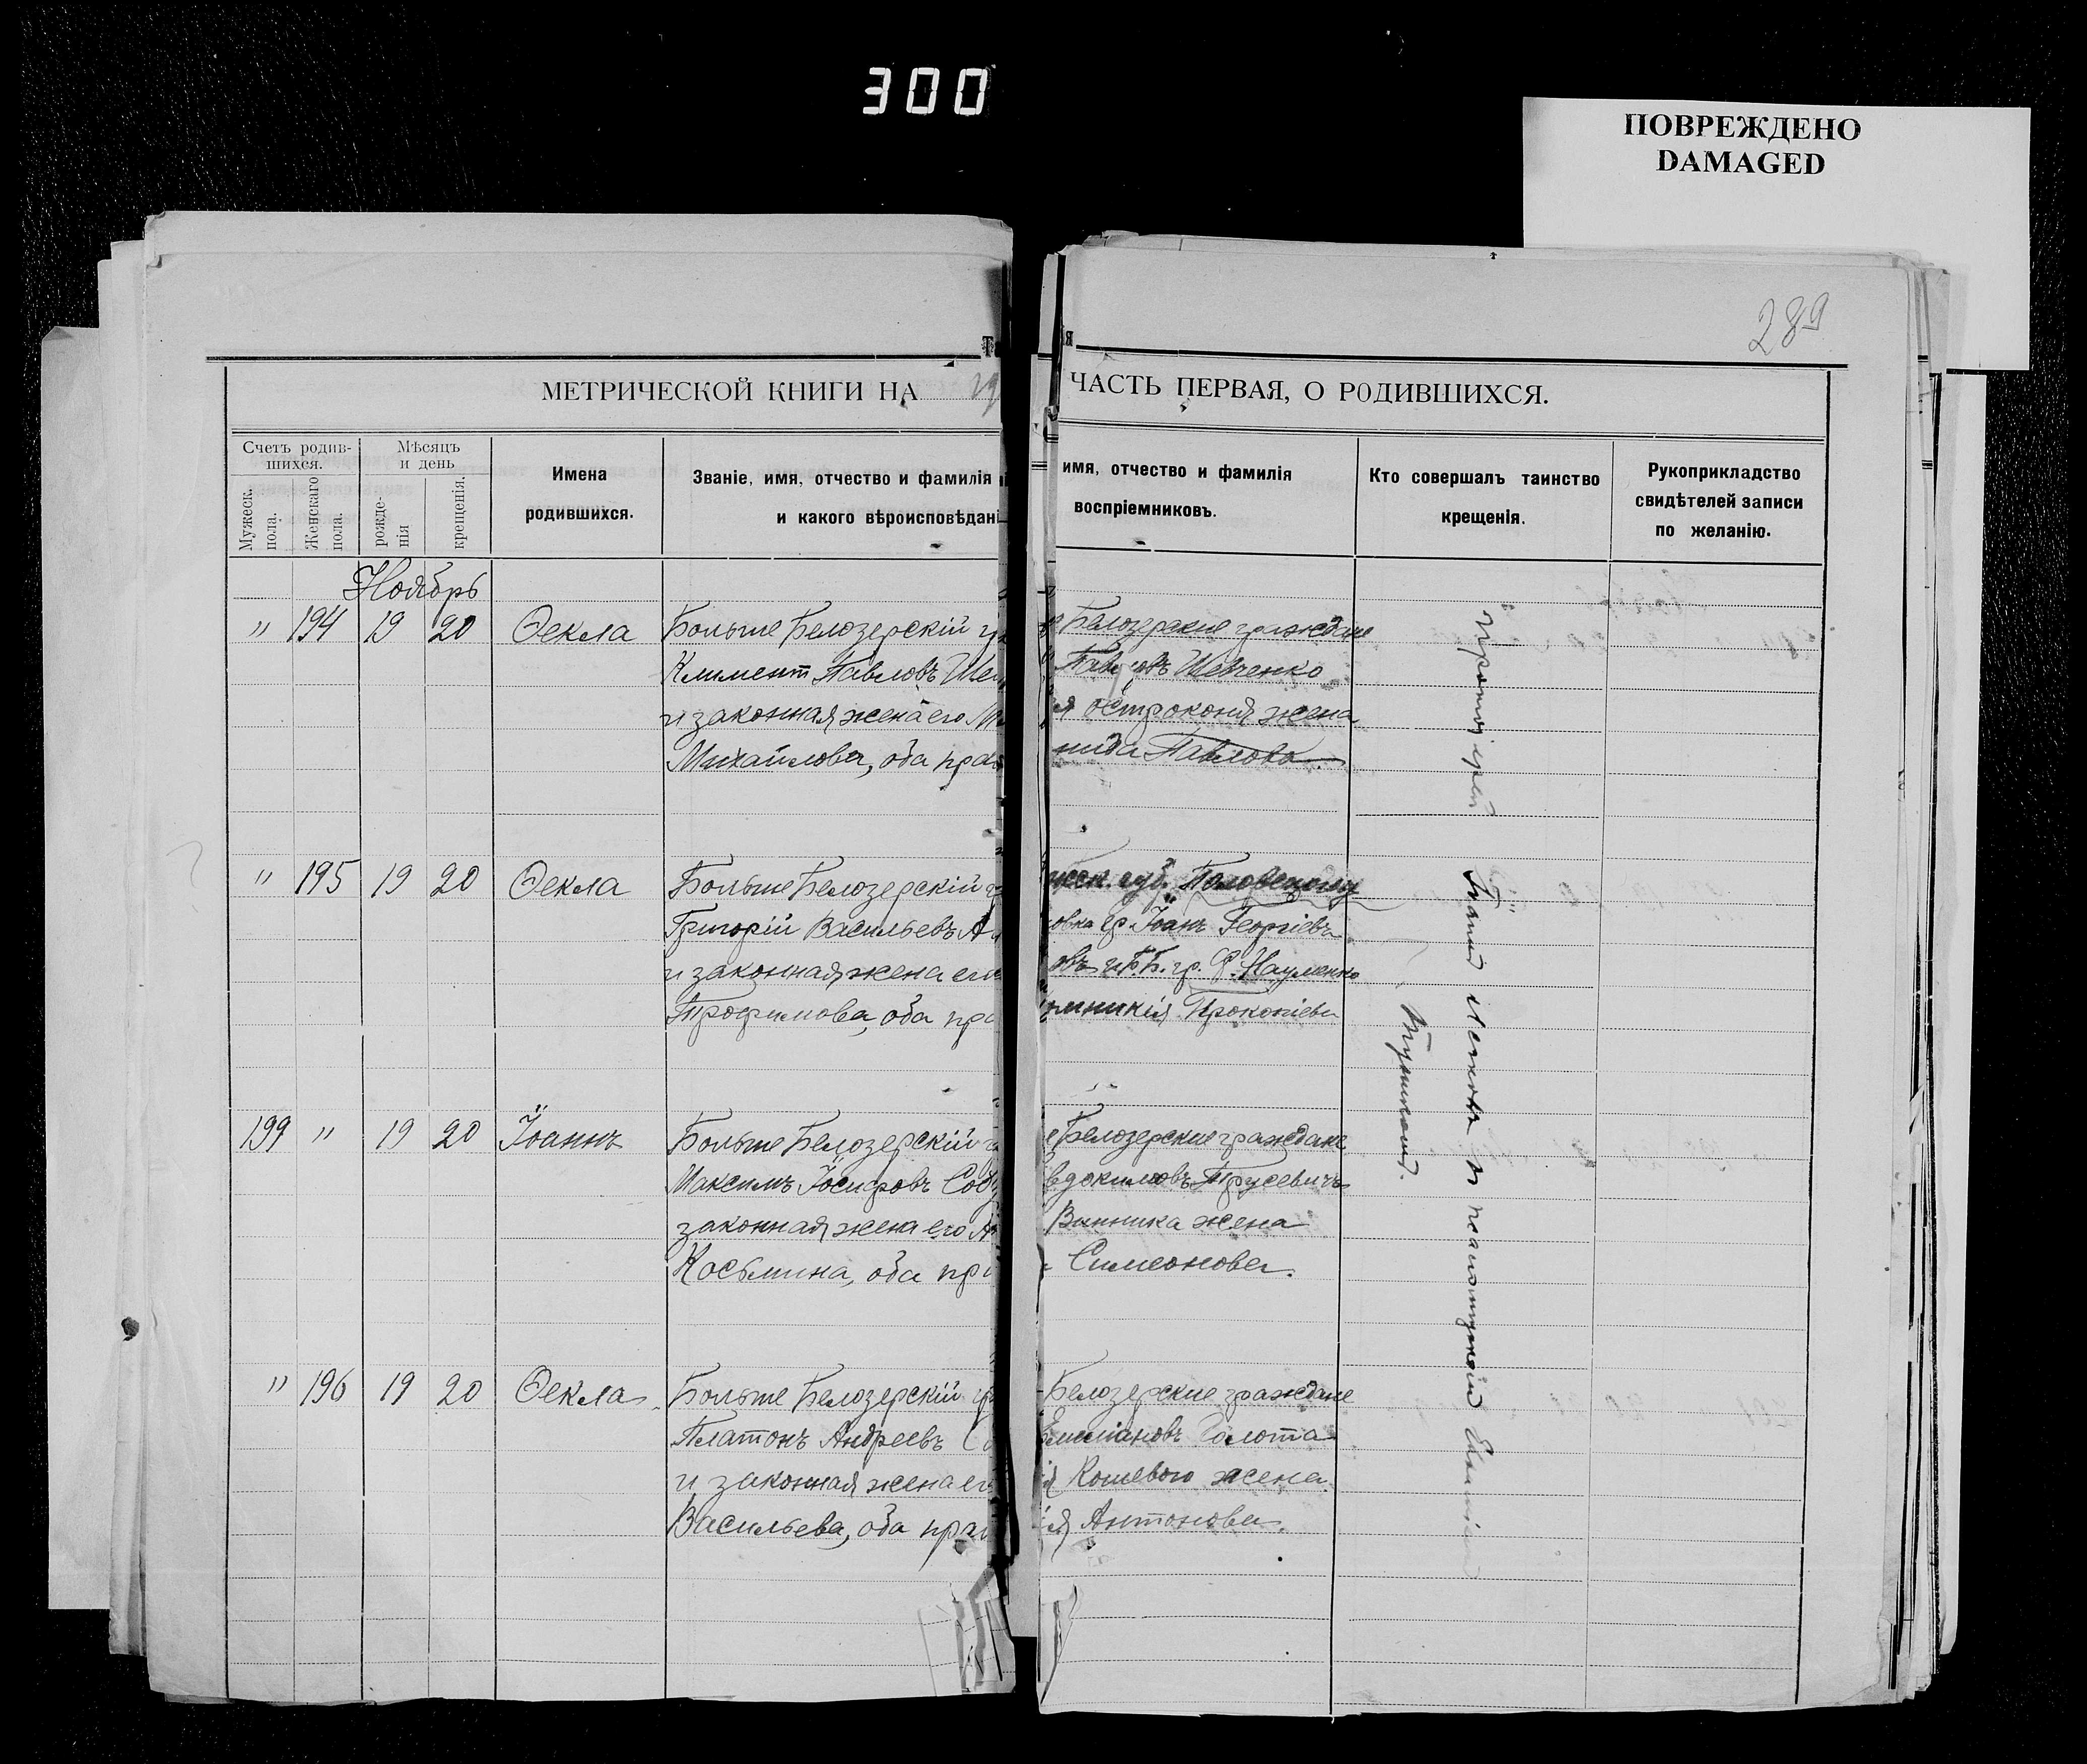 300
ПОВРЕЖДЕНО
DAMAGED
289
МЕТРИЧЕСКОЙ КНИГИ НА 19
ЧАСТЬ ПЕРВАЯ, О РОДИВШИХСЯ.
Счетъ родив-
шихся.
Мужеск. пола.
Женскаго пола.
Мѣсяцъ
и день
рожде-
нія
крещенія.
Имена
родившихся.
Званіе, имя, отчество и фамилія
и какого вѣроисповѣдані
имя, отчество и фамилія
воспріемниковъ.
Кто совершалъ таинство
крещенія.
Рукоприкладство
свидѣтелей записи
по желанію.
Ноябрь
" 194 19 20 Ѳекла Больше Белозерскій гр
Климент Павловъ Шев
и законная жена его М
Михайлова, оба прав
Белозерские граждане
Павловъ Шевченко
я острокопя жена
нида Павлова.
" 195 19 20 Ѳекла Больше Белозерскій г
Григорій Васильевъ А
и законная жена его
Трофимова, оба пра
губ.
овка гр. Іоанъ Георгіевъ
овъ и Б.Б. гр. Ф. Науменко
Прокопіева
199 " 19 20 Іоаннъ Больше Белозерскій г
Максимъ Іосифовъ Соб
законная жена его А
Косьмина, оба пра
е Белозерские граждане
вдокимовъ Трусевичъ
Винника жена
Симеонова.
" 196 19 20 Ѳекла. Больше Белозерскій гр
Платонъ Андреевъ
и законная жена его
Васильева, оба прав
Белозерские граждане
Емиліановъ Голота
я Кошевого жена.
ія Антонова.
Протоіерей